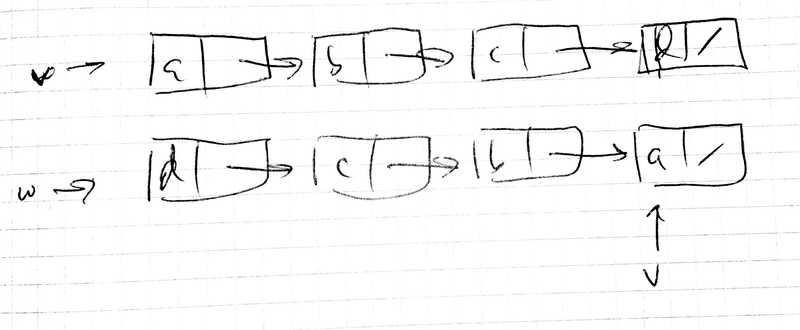 v → a → b → c → d /
w → d → c → b → a /
↑
v